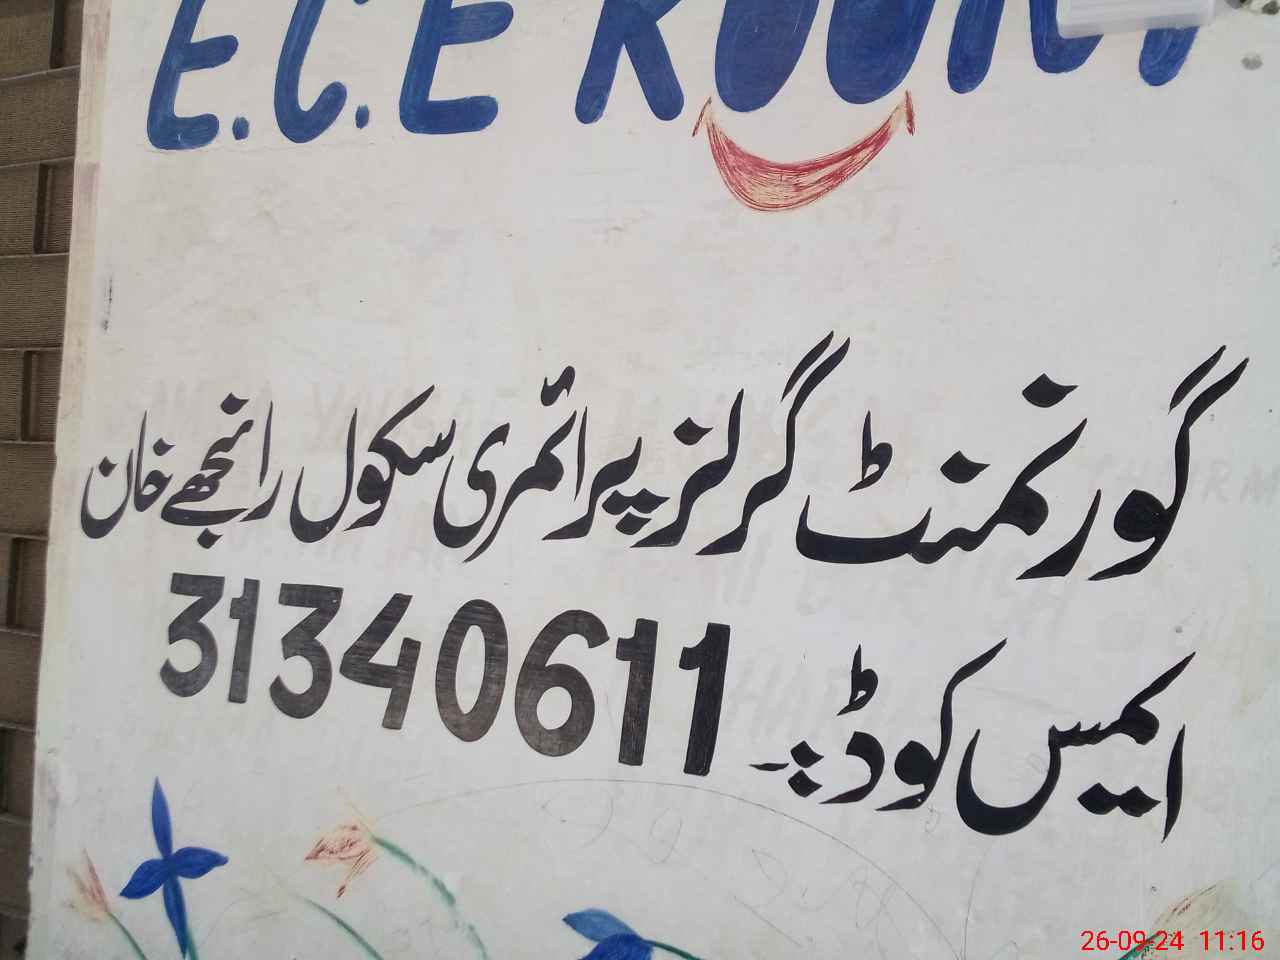 E.C.E ROOM
گورنمنٹ گرلز پرائمری سکول رانجھے خان
ایمس کوڈ ۔ 31340611
26-09-24 11:16